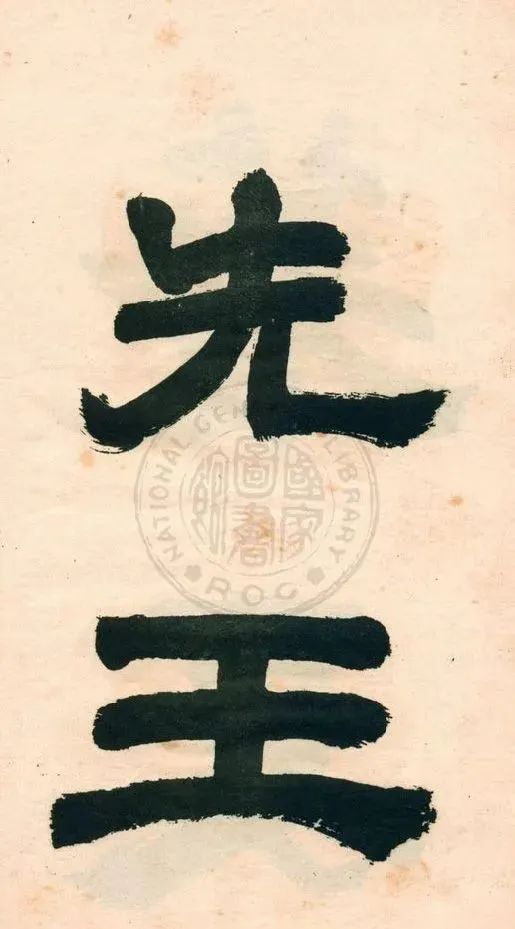 先
王
NATIONAL CENTRAL LIBRARY
R.O.C
國家圖書館